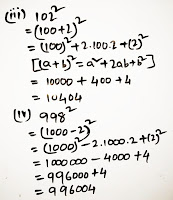 (iii) 102²
= (100+2)²
= (100)² + 2.100.2 + (2)²
[(a+b)² = a² + 2ab + b²]
= 10000 + 400 + 4
= 10404
(iv) 998²
= (1000-2)²
= (1000)² - 2.1000.2 + (2)²
= 1000000 - 4000 + 4
= 996000 + 4
= 996004